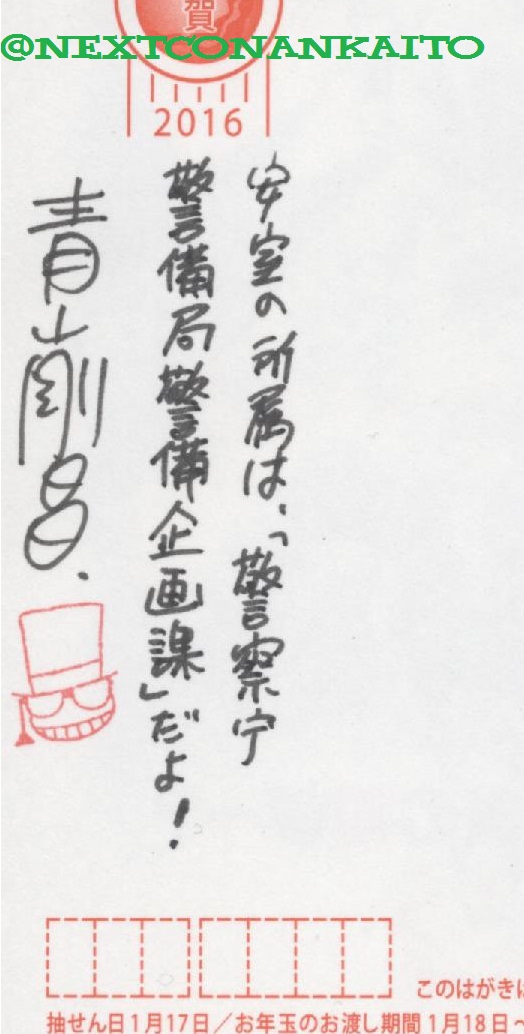 賀
@NEXTCONANKAITO
2016
安室の所属は、「警察庁
警備局警備企画課」だよ!
青山剛昌.
このはがきは
抽せん日1月17日/お年玉のお渡し期間1月18日~